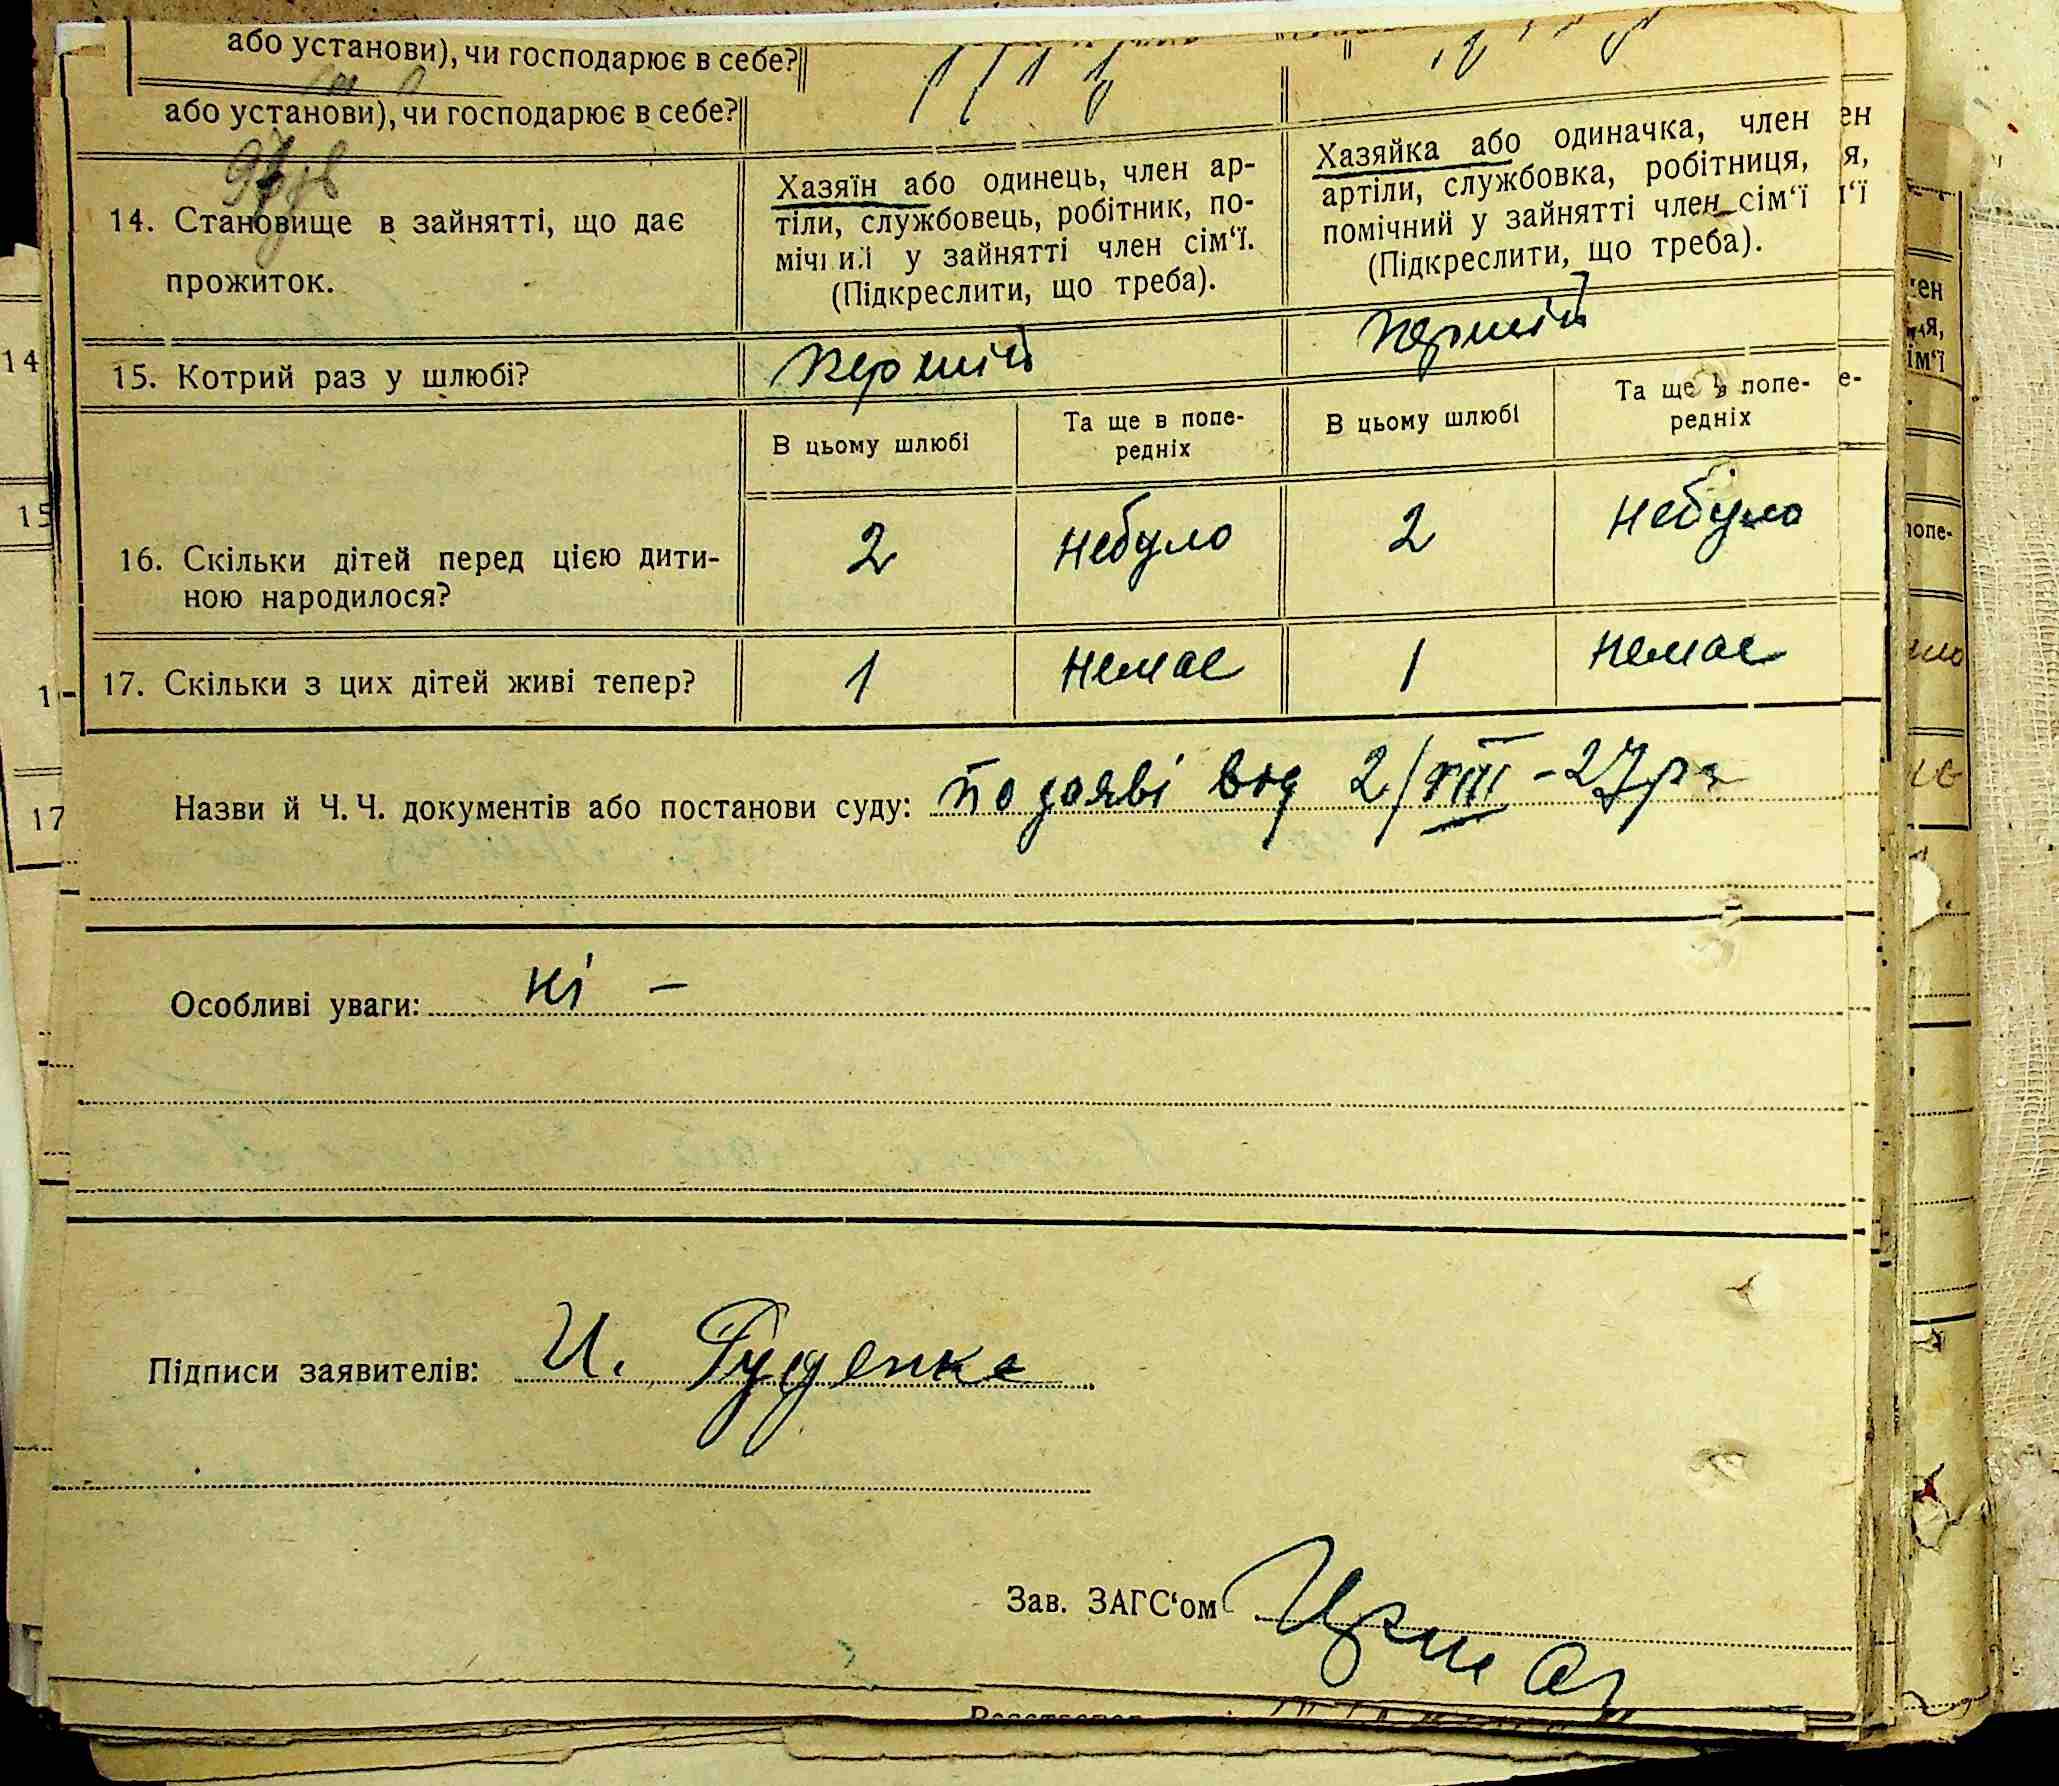 або установи), чи господарює в себе?
або установи), чи господарює в себе?
14. Становище в зайнятті, що дає
прожиток.
Хазяїн або одинець, член ар-
тіли, службовець, робітник, по-
мічний у зайнятті член сім‘ї.
(Підкреслити, що треба).
Хазяйка або одиначка, член
артіли, службовка, робітниця,
помічний у зайнятті член сім‘ї
(Підкреслити, що треба).
15. Котрий раз у шлюбі?
перший
перший
В цьому шлюбі
Та ще в попе-
редніх
В цьому шлюбі
Та ще в попе-
редніх
16. Скільки дітей перед цією дити-
ною народилося?
2
небуло
2
небуло
17. Скільки з цих дітей живі тепер?
1
немає
1
немає
Назви й Ч. Ч. документів або постанови суду: по заяві від 2/VIII-27р
Особливі уваги: ні –
Підписи заявителів: И. Руденко
Зав. ЗАГС‘ом
14
15
17
ен
я,
ї
е-
ен
я,
ім‘ї
попе-